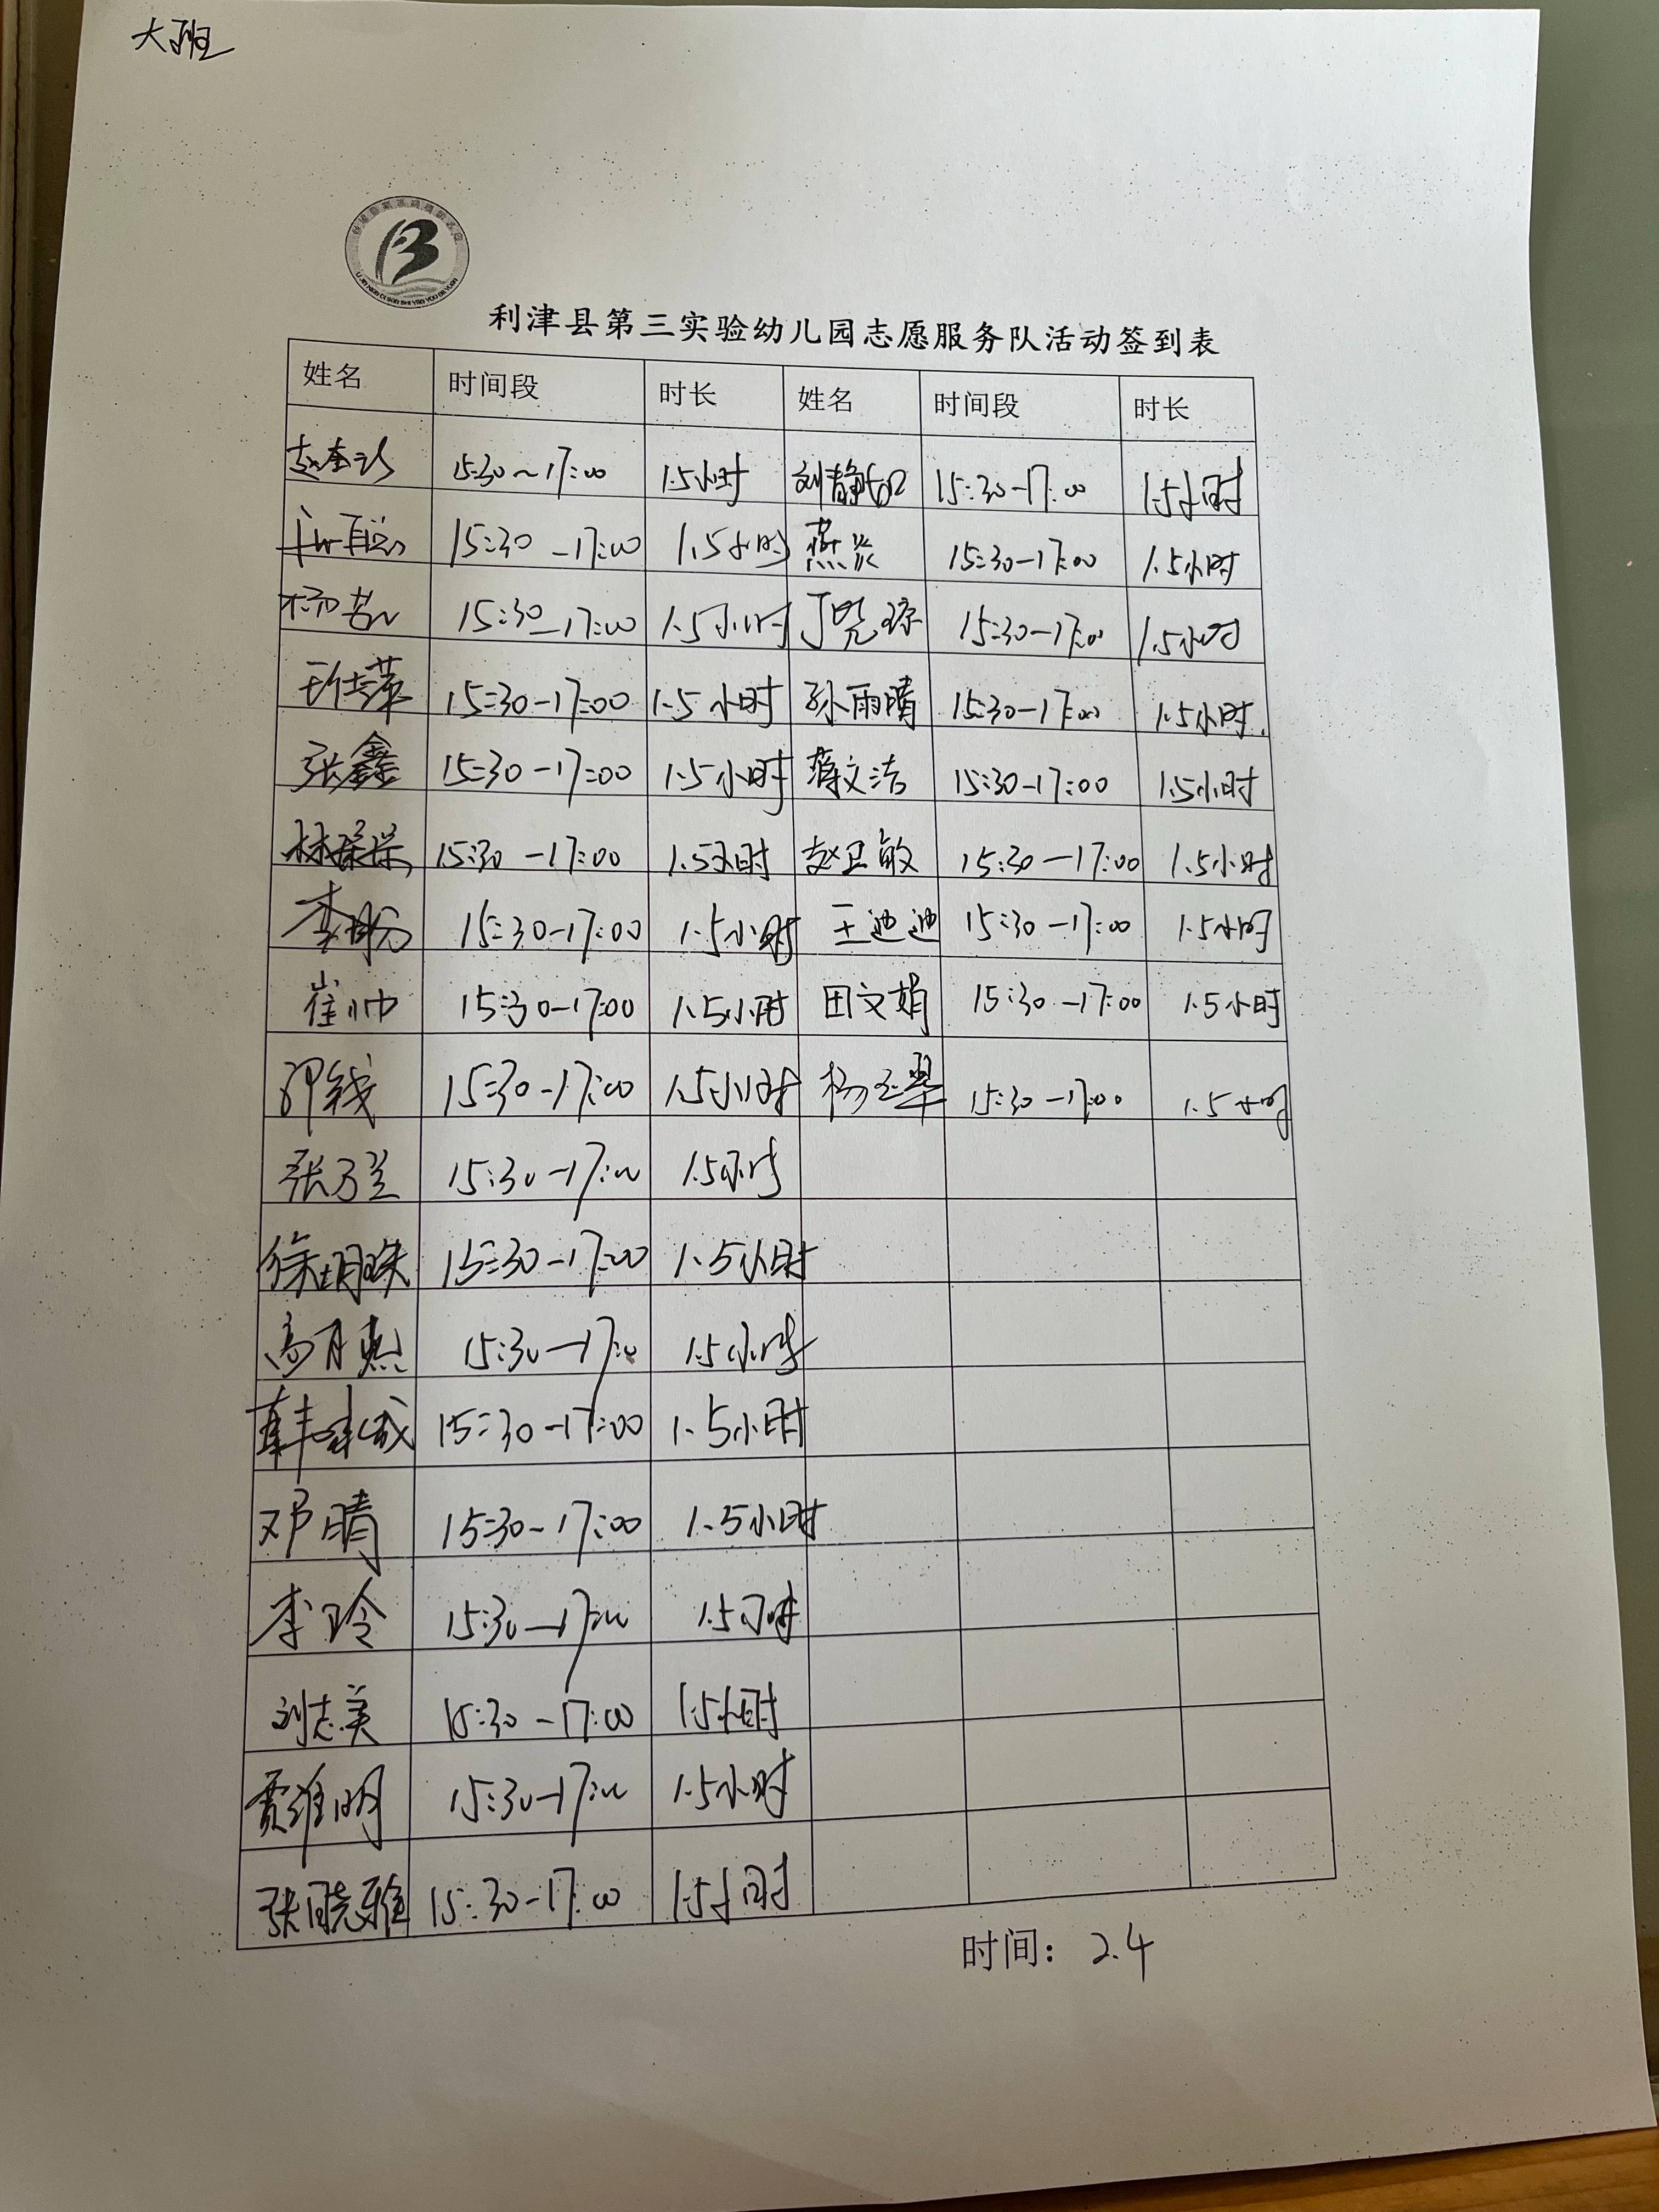 大班
利津县第三实验幼儿园志愿服务队活动签到表
姓名 时间段 时长 姓名 时间段 时长
15:30~17:00 1.5小时 刘静 15:30-17:00 1.5小时
15:30-17:00 1.5小时 燕 15:30-17:00 1.5小时
杨 15:30-17:00 1.5小时 丁晓琼 15:30-17:00 1.5小时
15:30-17:00 1.5小时 孙雨晴 15:30-17:00 1.5小时.
张鑫 15:30-17:00 1.5小时 蒋文洁 15:30-17:00 1.5小时
林 15:30-17:00 1.5小时 赵卫敏 15:30-17:00 1.5小时
李盼 15:30-17:00 1.5小时 王迪迪 15:30-17:00 1.5小时
崔帅 15:30-17:00 1.5小时 田文娟 15:30-17:00 1.5小时
15:30-17:00 1.5小时 杨玉翠 15:30-17:00 1.5小时
张万兰 15:30-17:00 1.5小时
徐明珠 15:30-17:00 1.5小时
高月燕 15:30-17:00 1.5小时
15:30-17:00 1.5小时
邓晴 15:30-17:00 1.5小时
李玲 15:30-17:00 1.5小时
刘志美 15:30-17:00 1.5小时
贾维明 15:30-17:00 1.5小时
张晓雅 15:30-17:00 1.5小时
时间：2.4